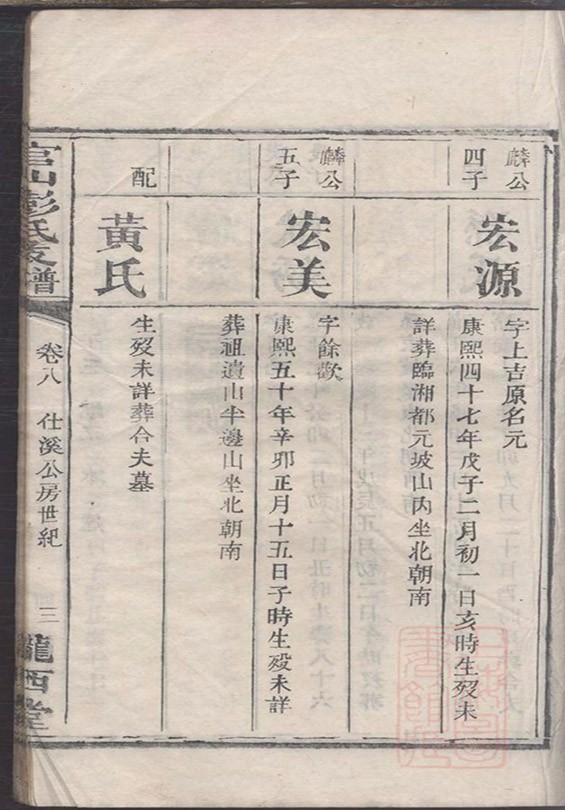 麟公
四子
宏源
字上吉原名元
康熙四十七年戊子二月初一日亥時生歿未
詳葬臨湘都元坡山内坐北朝南
麟公
五子
宏美
字餘歡
康熙五十年辛卯正月十五日子時生歿未詳
葬祖遺山半邊山坐北朝南
配
黃氏
生歿未詳葬合夫墓
官山彭氏支譜
卷八 仕溪公房世紀
三
隴西堂